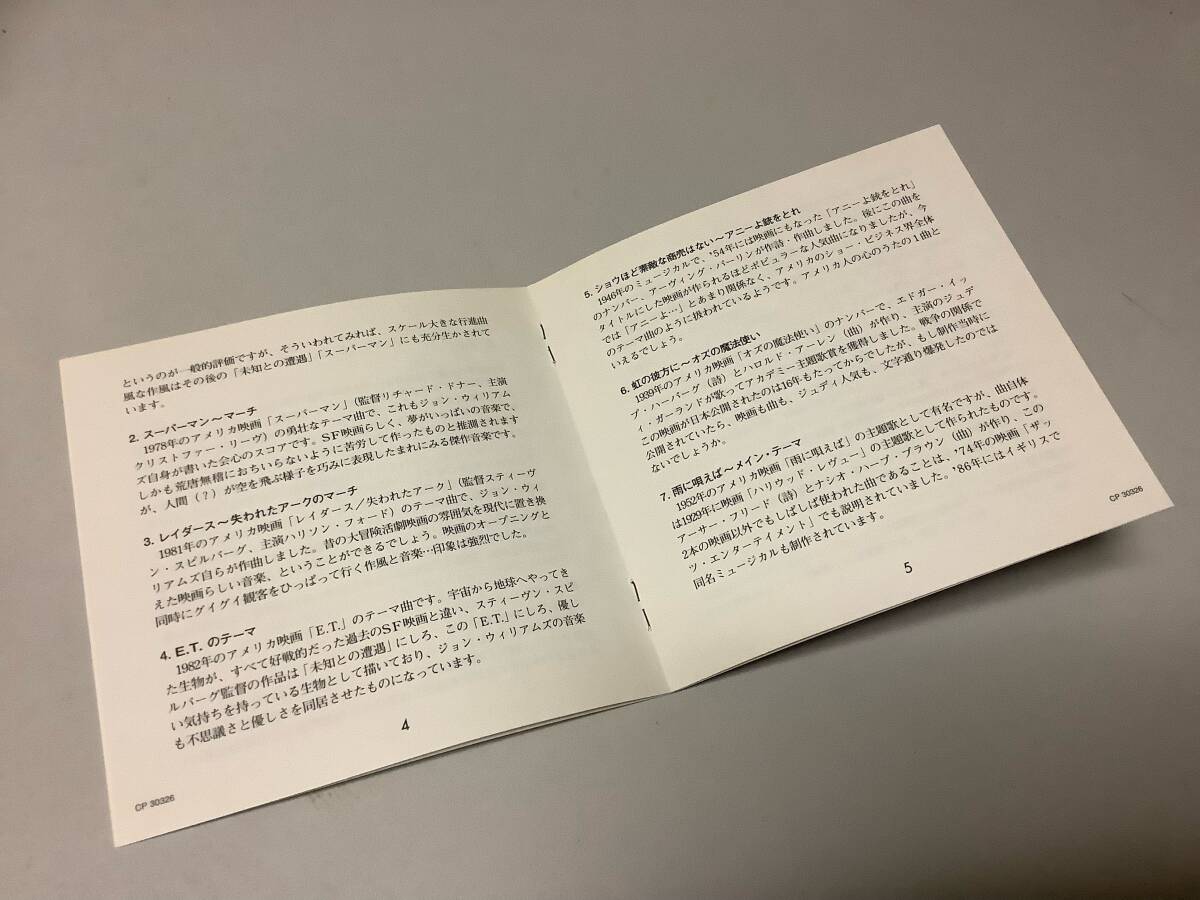 というのが一般的評価ですが、そういわれてみれば、スケール大きな行進曲
風な作風はその後の「未知との遭遇」「スーパーマン」にも充分生かされて
います。
2. スーパーマン〜マーチ
1978年のアメリカ映画「スーパーマン」(監督リチャード・ドナー、主演
クリストファー・リーヴ)の勇壮なテーマ曲で、これもジョン・ウィリアム
ズ自身が書いた会心のスコアです。SF映画らしく、夢がいっぱいの音楽で、
しかも荒唐無稽におちいらないように苦労して作ったものと推測されます
が、人間(?)が空を飛ぶ様子を巧みに表現したまれにみる傑作音楽です。
3. レイダース〜失われたアークのマーチ
1981年のアメリカ映画「レイダース/失われたアーク」(監督スティーヴ
ン・スピルバーグ、主演ハリソン・フォード)のテーマ曲で、ジョン・ウィ
リアムズ自らが作曲しました。昔の大冒険活劇映画の雰囲気を現代に置き換
えた映画らしい音楽、ということができるでしょう。映画のオープニングと
同時にグイグイ観客をひっぱって行く作風と音楽…印象は強烈でした。
4. E.T. のテーマ
1982年のアメリカ映画「E.T.」のテーマ曲です。宇宙から地球へやってき
た生物が、すべて好戦的だった過去のSF映画と違い、スティーヴン・スピ
ルバーグ監督の作品は「未知との遭遇」にしろ、この「E.T.」にしろ、優し
い気持ちを持っている生物として描いており、ジョン・ウィリアムズの音楽
も不思議さと優しさを同居させたものになっています。
4
CP 30326
5. ショウほど素敵な商売はない〜アニーよ銃をとれ
1946年のミュージカルで、'54年には映画にもなった「アニーよ銃をとれ」
のナンバー、アーヴィング・バーリンが作詩・作曲しました。後にこの曲を
タイトルにした映画が作られるほどポピュラーな人気曲になりましたが、今
では「アニーよ…」とあまり関係なく、アメリカのショー・ビジネス界全体
のテーマ曲のように扱われているようです。アメリカ人の心のうたの1曲と
いえるでしょう。
6. 虹の彼方に〜オズの魔法使い
1939年のアメリカ映画「オズの魔法使い」のナンバーで、エドガー・イッ
プ・ハーバーグ(詩)とハロルド・アーレン(曲)が作り、主演のジュデ
ィ・ガーランドが歌ってアカデミー主題歌賞を獲得しました。戦争の関係で
この映画が日本公開されたのは16年もたってからでしたが、もし制作当時に
公開されていたら、映画も曲も、ジュディ人気も、文字通り爆発したのでは
ないでしょうか。
7. 雨に唄えば〜メイン・テーマ
1952年のアメリカ映画「雨に唄えば」の主題歌として有名ですが、曲自体
は1929年に映画「ハリウッド・レヴュー」の主題歌として作られたものです。
アーサー・フリード(詩)とナシオ・ハーブ・ブラウン(曲)が作り、この
2本の映画以外でもしばしば使われた曲であることは、'74年の映画「ザッ
ツ・エンターテイメント」でも説明されていました。'86年にはイギリスで
同名ミュージカルも制作されています。
5
CP 30326